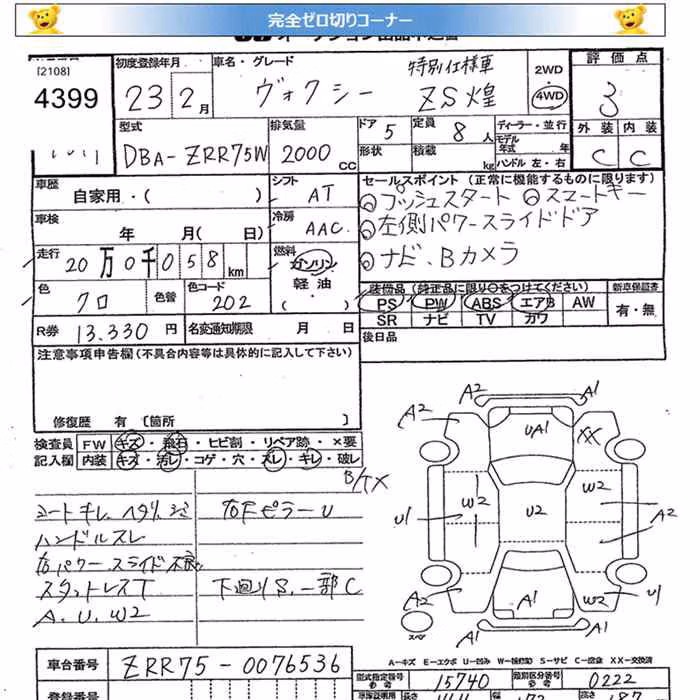 完全ゼロ切りコーナー
[2108]
4399
初度登録年月
23年 2月
車名・グレード
ヴォクシー
特別仕様車
ZS煌
2WD
4WD
評価点
3
外装 内装
C C
型式
DBA-ZRR75W
排気量
2000 CC
ドア 5
形状
定員 8人
積載 kg
ディーラー・並行
モデル年式 年
ハンドル 左・右
車歴
自家用・( )
シフト AT
車検 年 月( 日)
冷房 AAC
走行 20万0千058km
燃料 ガソリン・軽油・( )
色 クロ
色替
カラーコード 202
R券 13.330円
名変通知期限 月 日
セールスポイント (正常に機能するものに限ります)
プッシュスタート スマートキー
左側パワースライドドア
ナビ、Bカメラ
装備品(純正品に限り○をつけてください)
PS PW ABS エアB AW
SR ナビ TV カワ
新車保証書
有・無
後日品
注意事項申告欄(不具合内容等は具体的に記入して下さい)
修復歴 有〔箇所 〕
検査員記入欄
FW キズ・飛石・ヒビ割・リペア跡・×要
内装 キズ・汚レ・コゲ・穴・スレ・キレ・破レ
シートキレ、ヘタリ、シミ
ハンドルスレ
右パワースライド不良
スタットレスT
A.U.W2
右FピラーU
下廻りS.一部C
A2 A1
A2 UA1 XX
W2 W2
U1 U2 A2
A2 A1 W2 U1
A1
スペア
A-キズ E-エクボ U-凹み W-補修跡 S-サビ C-腐食 XX-交換済
車台番号 ZRR75-0076536
登録番号
型式指定番号 15740
類別区分番号 0222